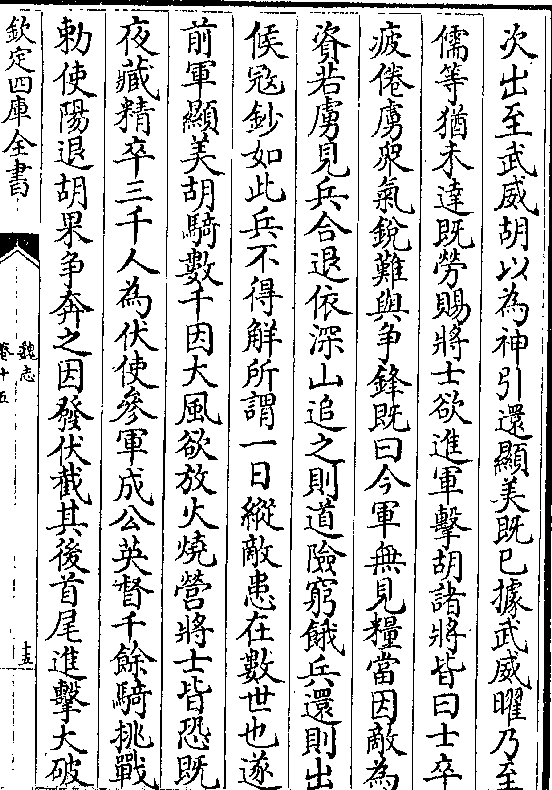 次出至武威胡以為神引還顯美既已據武威曜乃至
儒等猶未達既勞賜將士欲進軍擊胡諸將皆曰士卒
疲倦虜衆氣銳難與争鋒既曰今軍無見糧當因敵為
資若虜見兵合退依深山追之則道險窮餓兵還則出
候冦鈔如此兵不得解所謂一日縱敵患在數世也遂
前軍顯美胡騎數千因大風欲放火燒營將士皆恐既
夜藏精卒三千人為伏使參軍成公英督千餘騎挑戰
勅使陽退胡果争奔之因發伏截其後首尾進擊大破
欽定四庫全書
魏志
卷十五
十五